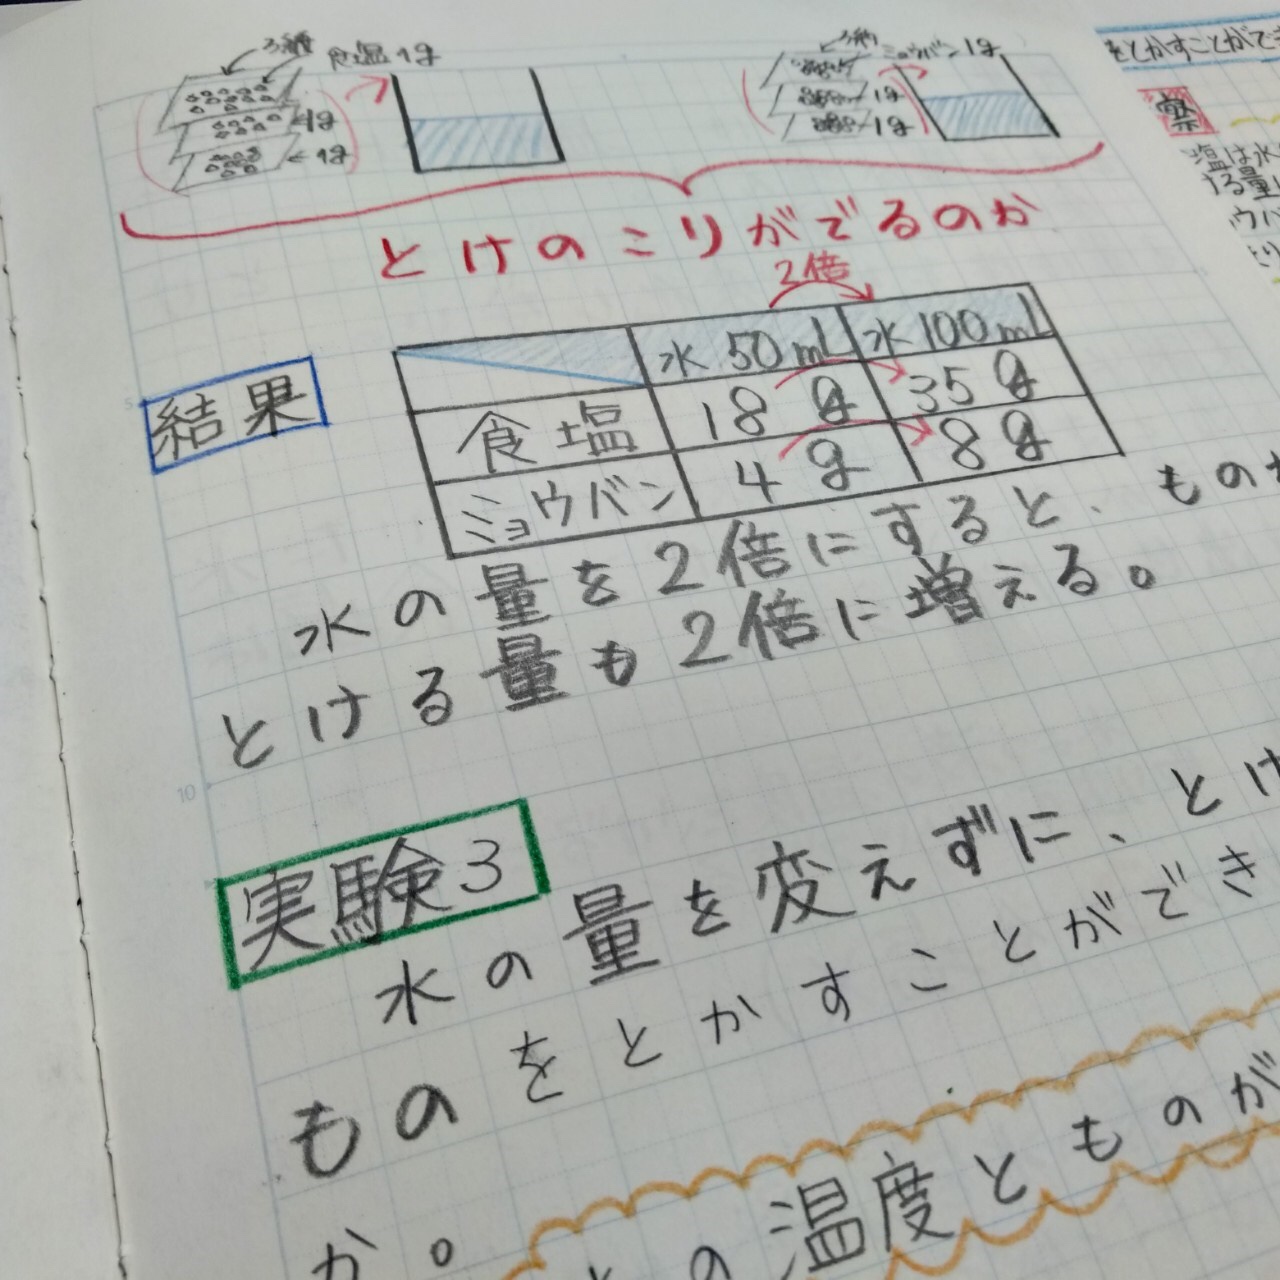 3種
食塩1g
1g
1g
ミョウバン1g
1g
1g
とけのこりがでるのか
2倍
結果
水50mL 水100mL
食塩 18g 35g
ミョウバン 4g 8g
水の量を2倍にすると、もの
とける量も2倍に増える。
実験3
水の量を変えずに、とけ
ものをとかすことができ
か。
の温度とものが
をとかすことができ
塩は水
ける量
ウバ